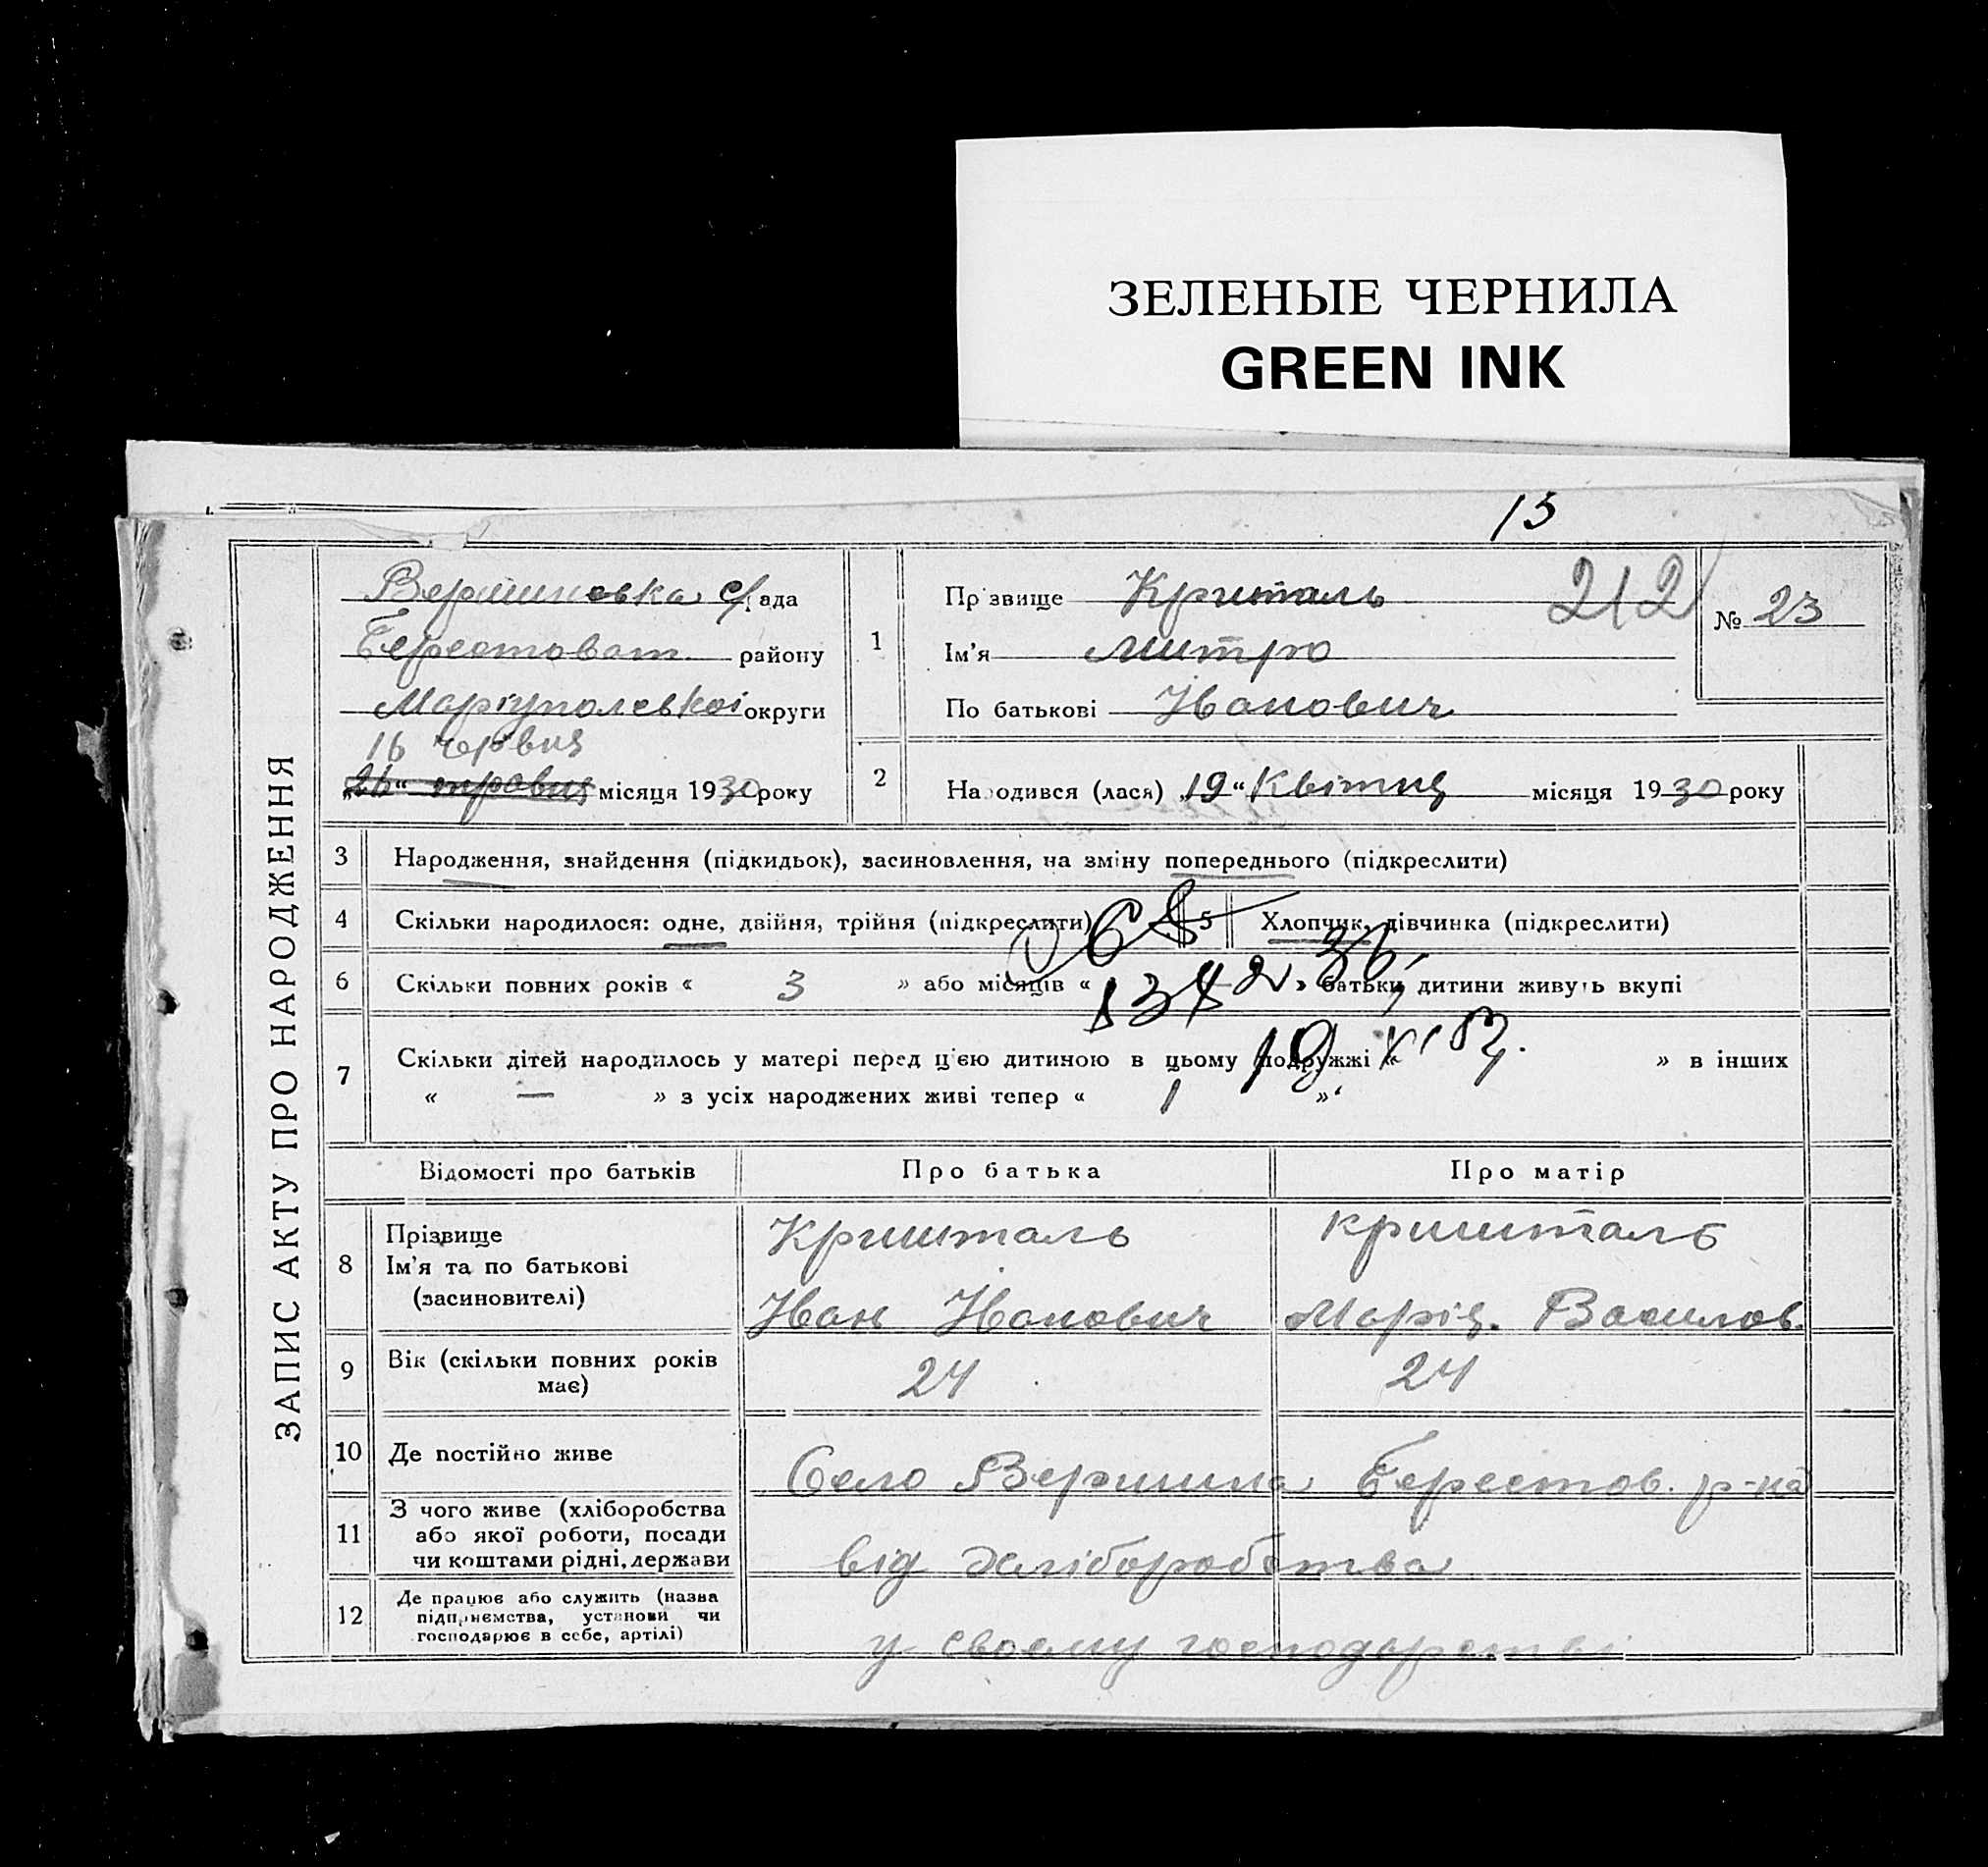 ЗЕЛЕНЫЕ ЧЕРНИЛА
GREEN INK
13
ЗАПИС АКТУ ПРО НАРОДЖЕННЯ
Вершиновка с/рада
Берестоват. району
Маріупольської округи
16 червня
„26“ травня місяця 1930 року
1
Прізвище Кришталь
212
Ім'я Митро
По батькові Іванович
№ 23
2
Народився (лася) „19“ Квітня місяця 1930 року
3 Народження, знайдення (підкидьок), засиновлення, на зміну попереднього (підкреслити)
4 Скільки народилося: одне, двійня, трійня (підкреслити)
5 Хлопчик, дівчинка (підкреслити)
6 Скільки повних років « 3 » або місяців « » батьки дитини живуть вкупі
7 Скільки дітей народилось у матері перед цією дитиною в цьому подружжі « » в інших
« — » з усіх народжених живі тепер « 1 »
Відомості про батьків Про батька Про матір
8
Прізвище
Ім'я та по батькові
(засновителі)
Кришталь
Иван Иванович
Кришталь
Марія Василов.
9
Вік (скільки повних років
має)
24
24
10 Де постійно живе
Село Вершина Берестов. р-на
11
З чого живе (хліборобства
або якої роботи, посади
чи коштами рідні, держави
від хліборобства
12
Де працює або служить (назва
підприємства, установи чи
господарює в себе, артілі)
у своєму господарстві